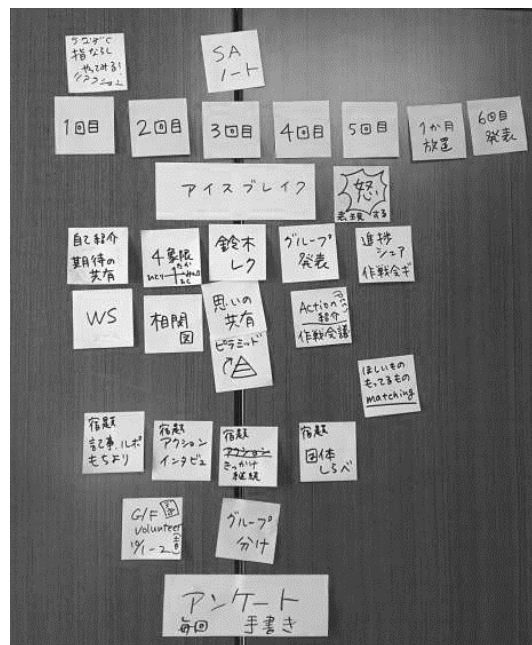 指ならし
やってみる!
SA
ノート
1回目
2回目
3回目
4回目
5回目
1か月
放置
6回目
発表
アイスブレイク
怒
表現する
自己紹介
期待の
共有
4象限
鈴木
レク
グループ
発表
進捗
シェア
作戦会ギ
WS
相関
図
思いの
共有
ピラミッド
Actionの
紹介
作戦会議
ほしいもの
もってるもの
matching
宿題
記事、ルポ
もちより
宿題
アクション
インタビュ
宿題
アクション
きっかけ
継続
宿題
団体
しらべ
G/F
volunteer
10/1-2
グループ
分け
アンケート
毎回 手書き